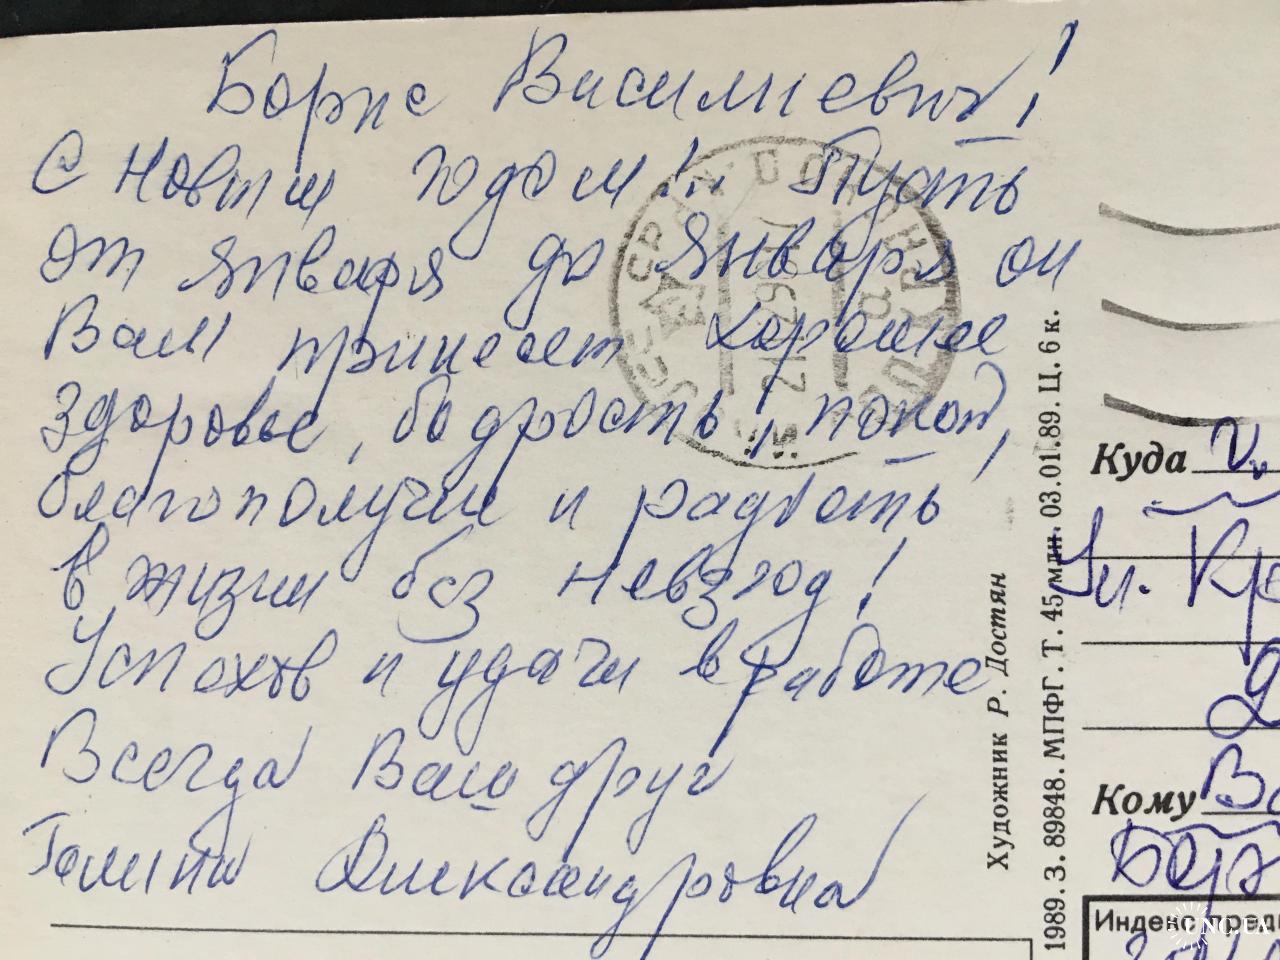 Борис Василиевич!
С Новым годом!.. Пусть
от января до января он
Вам принесет хорошее
здоровье, бодрость, покой,
благополучие и радость
в жизни без невзгод!
Успехов и удачи в работе
Всегда Ваш друг
Галина Александровна
Художник Р. Достян
1989. З. 89848. МПФГ. Т. 45 млн. 03.01.89. Ц. 6 к.
Куда
ул. Кр
Кому Ва
Бор
Индекс пред
UNC.UA